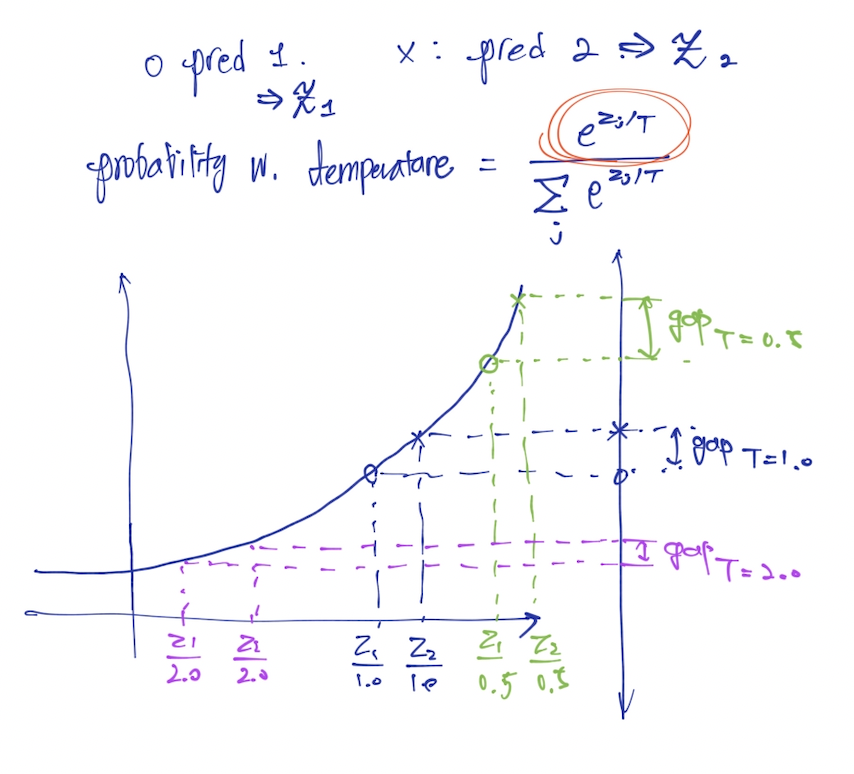 o pred 1. x : pred 2 ⇒ Z₂
⇒ Z₁
probability w. temperature = e^{Zj/T} / Σ_j e^{Zj/T}
gap T=0.5
gap T=1.0
gap T=2.0
Z1/2.0 Z2/2.0 Z1/1.0 Z2/1.0 Z1/0.5 Z2/0.5